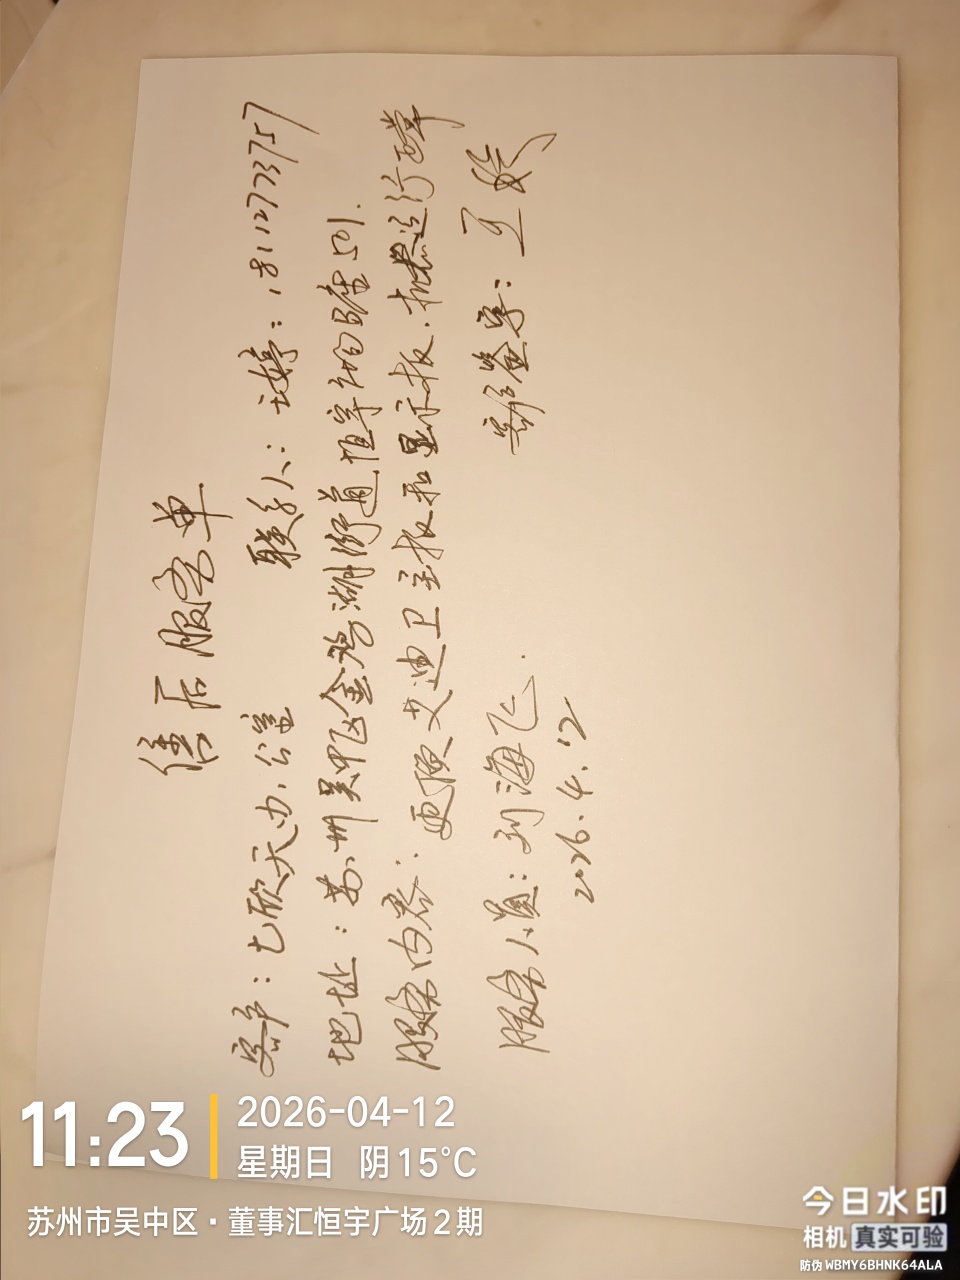 售后服务单
客户：七欣天办公室 联系人：婷：18112773757
地址：苏州吴中区金鸡湖街道恒宇广场B座501.
服务内容：更换艾迪卫主板和显示板.机器运行正常
服务人员：刘海飞. 客户签字：王
2026.4.12
11:23
2026-04-12
星期日 阴15℃
苏州市吴中区·董事汇恒宇广场2期
今日水印
相机 真实可验
防伪 WBMY6BHNK64ALA